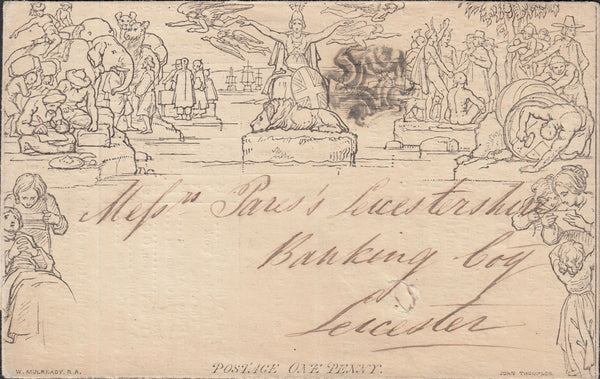 Messrs Pares's Leicestershire
Banking Coy
Leicester
W. MULREADY. R.A.
POSTAGE ONE PENNY.
JOHN THOMPSON